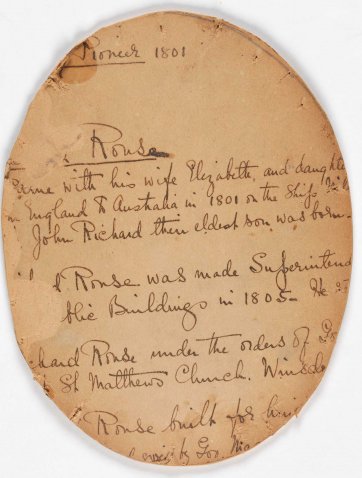 Pioneer 1801
Rouse
Came with his wife Elizabeth, and daughte
England to Australia in 1801 on the Ship
John Richard their eldest son was born
Rouse was made Superintend
blic Buildings in 1805- He
chard Rouse under the orders of
St Matthews Church. Winds
Rouse built for
by Gov. Mac